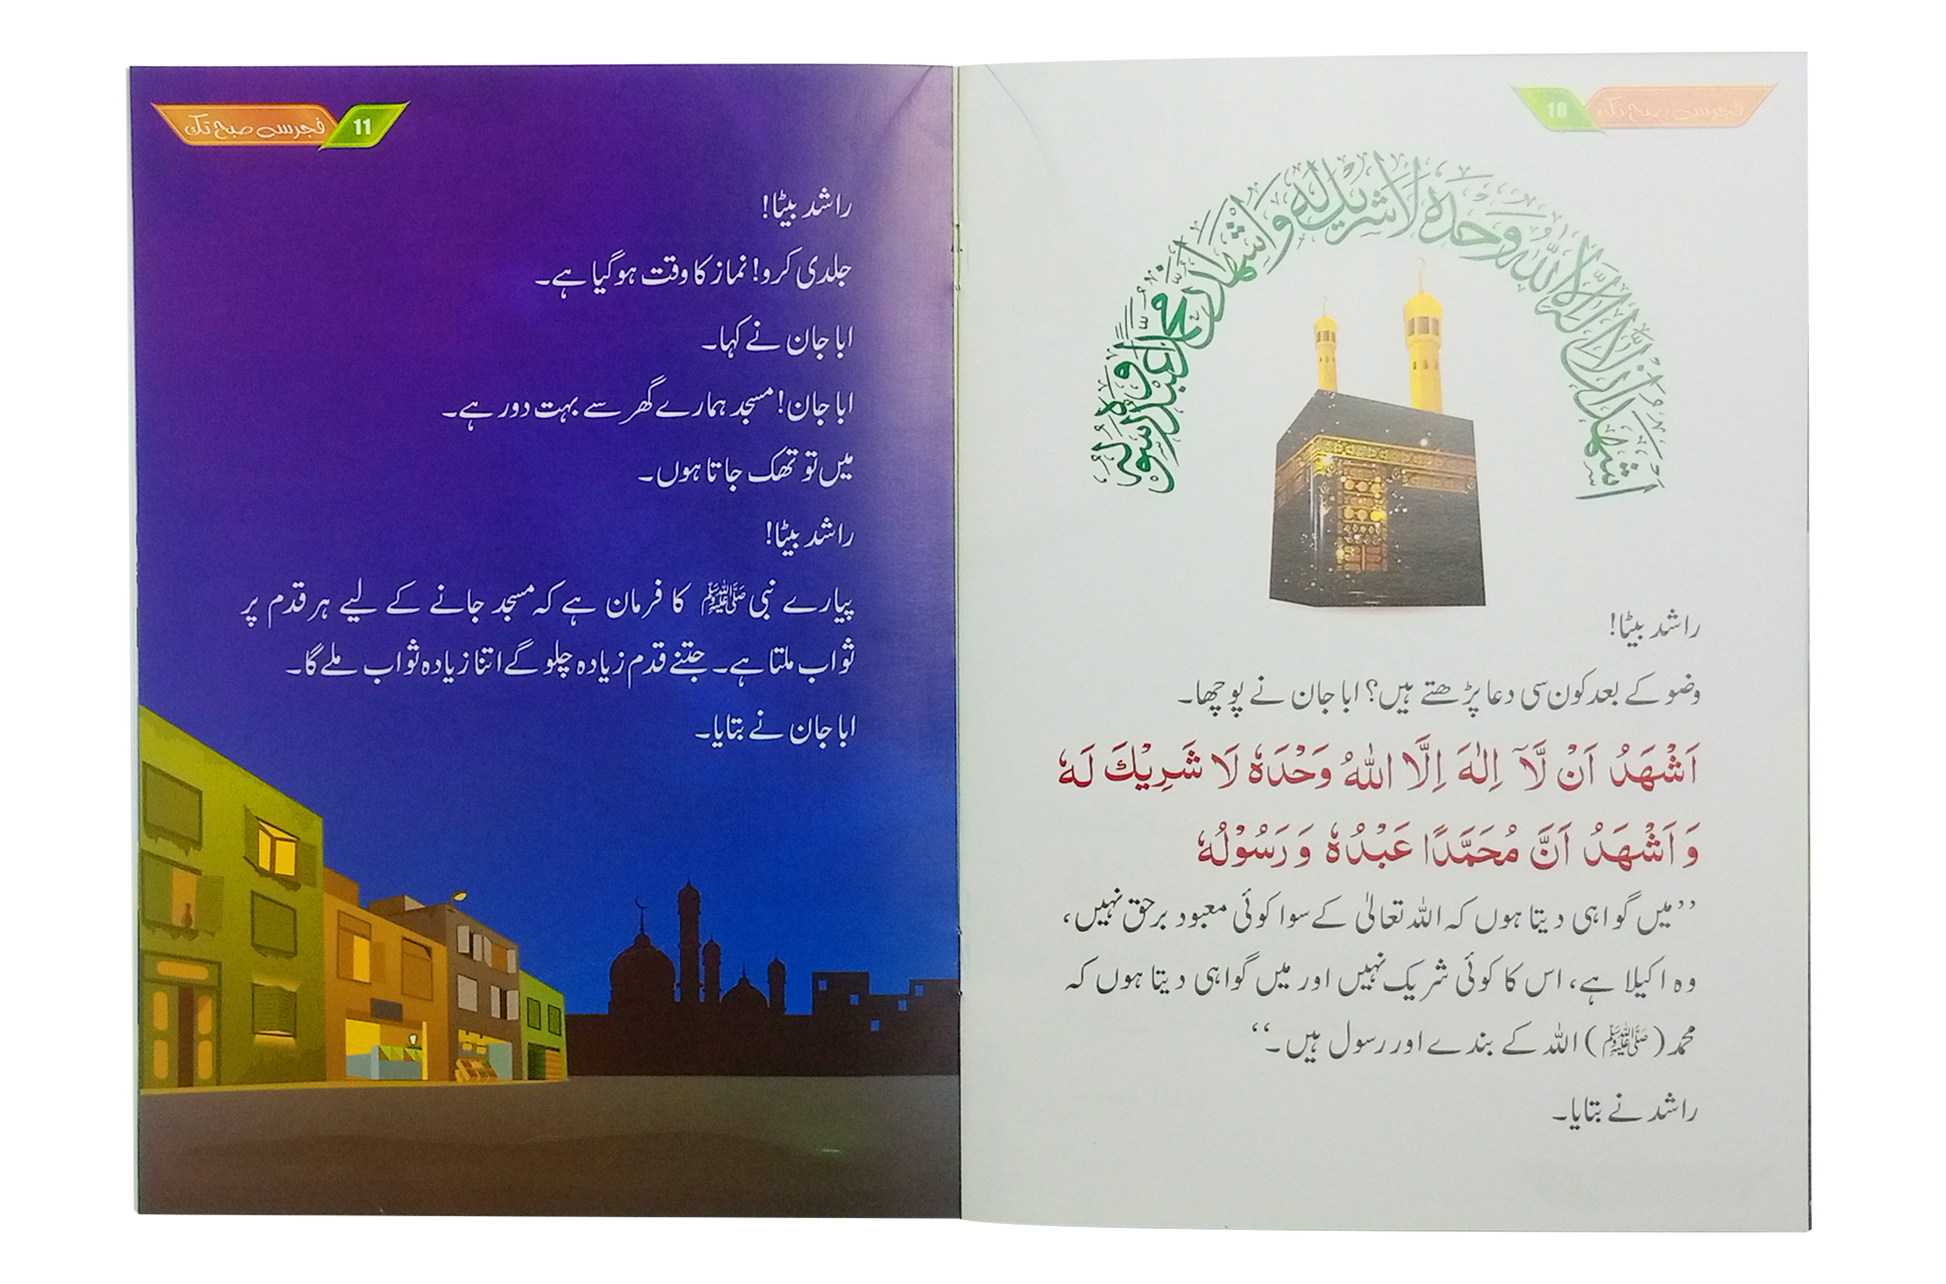 10 فجر سے صبح تک
اشهد ان لا اله الا الله وحده لا شريك له و اشهد ان محمدا عبده و رسوله
راشد بیٹا!
وضو کے بعد کون سی دعا پڑھتے ہیں؟ ابا جان نے پوچھا۔
اَشْهَدُ اَنْ لَّآ اِلٰهَ اِلَّا اللّٰهُ وَحْدَهٗ لَا شَرِيْكَ لَهٗ
وَ اَشْهَدُ اَنَّ مُحَمَّدًا عَبْدُهٗ وَ رَسُوْلُهٗ
’’میں گواہی دیتا ہوں کہ اللہ تعالیٰ کے سوا کوئی معبود برحق نہیں،
وہ اکیلا ہے، اس کا کوئی شریک نہیں اور میں گواہی دیتا ہوں کہ
محمد (ﷺ) اللہ کے بندے اور رسول ہیں۔‘‘
راشد نے بتایا۔
11 فجر سے صبح تک
راشد بیٹا!
جلدی کرو! نماز کا وقت ہو گیا ہے۔
ابا جان نے کہا۔
ابا جان! مسجد ہمارے گھر سے بہت دور ہے۔
میں تو تھک جاتا ہوں۔
راشد بیٹا!
پیارے نبی ﷺ کا فرمان ہے کہ مسجد جانے کے لیے ہر قدم پر
ثواب ملتا ہے۔ جتنے قدم زیادہ چلو گے اتنا زیادہ ثواب ملے گا۔
ابا جان نے بتایا۔